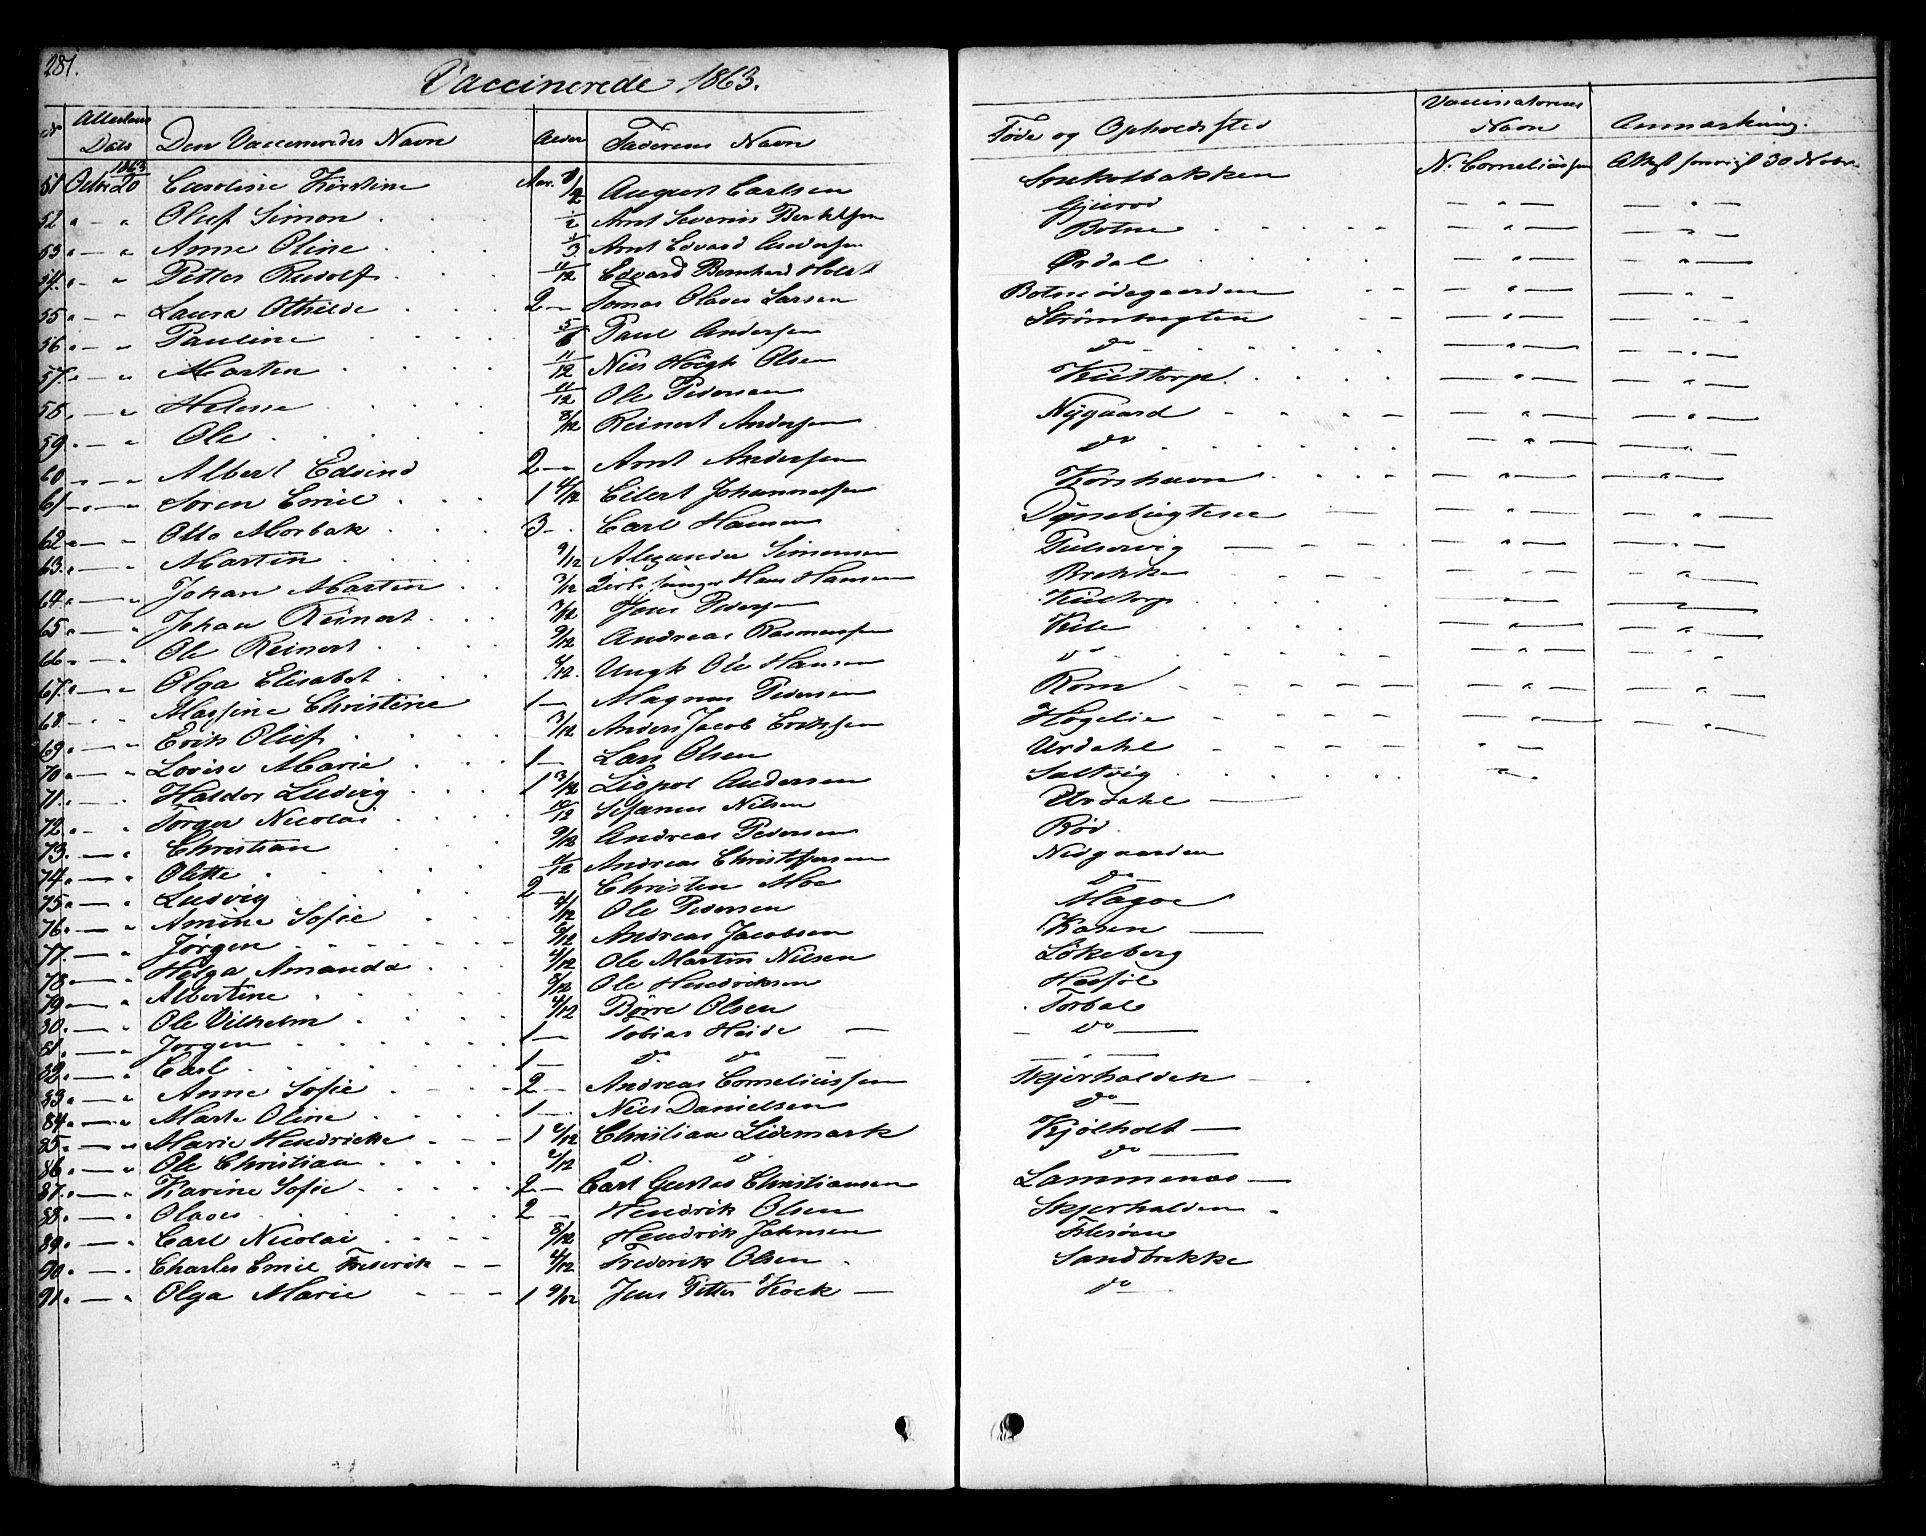 281.
Vaccinerede 1863.
No Attestens Dato Den Vaccineredes Navn Alder Faderens Navn Føde og Opholdssted Vaccinatorens Navn Anmærkning.
51 1863 Octbr 20 Caroline Kirstine Aar. 8/12 August Carlsen N. Corneliussen Attest 30 Novbr
52 " — " Oluf Simon 1/2 Arnt Severin Gjerød — " — — " —
53 " — " Anne Oline 1/3 Arnt Edvard Andersen Botne — " — — " —
54 " — " Petter Rudolf 11/12 Edvard Bernhard Holst Ørdal — " — — " —
55 " — " Laura Othilde 2 — Tomas Olaves Larsen Botneødegaarden — " — — " —
56 " — " Pauline 5/6 Paul Andersen Strømbugten — " — — " —
57 " — " Marten 11/12 Nils Høigh Olsen do — " — — " —
58 " — " Helene 11/12 Ole Pedersen — " — — " —
59 " — " Ole 8/12 Reinert Andersen Nygaard — " — — " —
60 " — " Albert Edvind 2 — Arnt Andersen do — " — — " —
61 " — " Søren Emil 1 4/12 Eilert Johannessen Korshavn — " — — " —
62 " — " Otto Morbak 3 — Carl Hansen — " — — " —
63 " — " Martin 9/12 Alexander Simonsen — " — — " —
64 " — " Johan Martin 3/12 Hans Hansen Brekke — " — — " —
65 " — " Johan Reinert 3/12 Jens Pedersen — " — — " —
66 " — " Ole Reinert 9/12 Andreas Rasmussen — " — — " —
67 " — " Olga Elisabet Ungk Ole Hansen do — " — — " —
68 " — " Massine Christine 1 — Magnus Pedersen Rom — " — — " —
69 " — " Erik Oluf 3/12 Anders Jacob Eriksen Høgelie — " — — " —
70 " — " Lovise Marie 1 — Lars Olsen Urdahl — " —
71 " — " Haldor Ludvig 1 3/12 Lispol Andersen Saltvig — " —
72 " — " Torger Nicolai 10/12 Stefanus Nilsen Urdahl —
73 " — " Christian 9/12 Andreas Pedersen Rød
74 " — " Olette Andreas Christofersen Nedgaarden
75 " — " Ludvig 2 — Christen Moe do —
76 " — " Amine Sofie 4/12 Ole Pedersen Magoe
77 " — " Jørgen 9/12 Andreas Jacobsen —
78 " — " Helga Amanda 4/12 Ole Martin Nilsen Løkeberg
79 " — " Albertine 8/12 Ole Hendriksen
80 " — " Ole Vilhelm 4/12 Børre Olsen Torbal
81 " — " Jørgen 1 — Tobias Heide — do —
82 " — " Carl 1 — do do —
83 " — " Anne Sofie 2 — Andreas Corneliussen Skjerhalden —
84 " — " Marte Oline 1 — Nils Danielsen do —
85 " — " Marie Hendrikke 1 2/12 Christian Lidemark Kjølholt —
86 " — " Ole Christian 2/12 do do do —
87 " — " Karine Sofie 2 — Carl Gustav Christiansen Lammenes —
88 " — " Olaves 2 — Hendrik Olsen Skjerhalden "
89 " — " Carl Nicolai 8/12 Hendrik Johnsen
90 " — " Charles Emil Frederik 4/12 Frederik Olsen Sandbrekke
91 " — " Olga Marie 1 9/12 Jens Petter Kock — do —